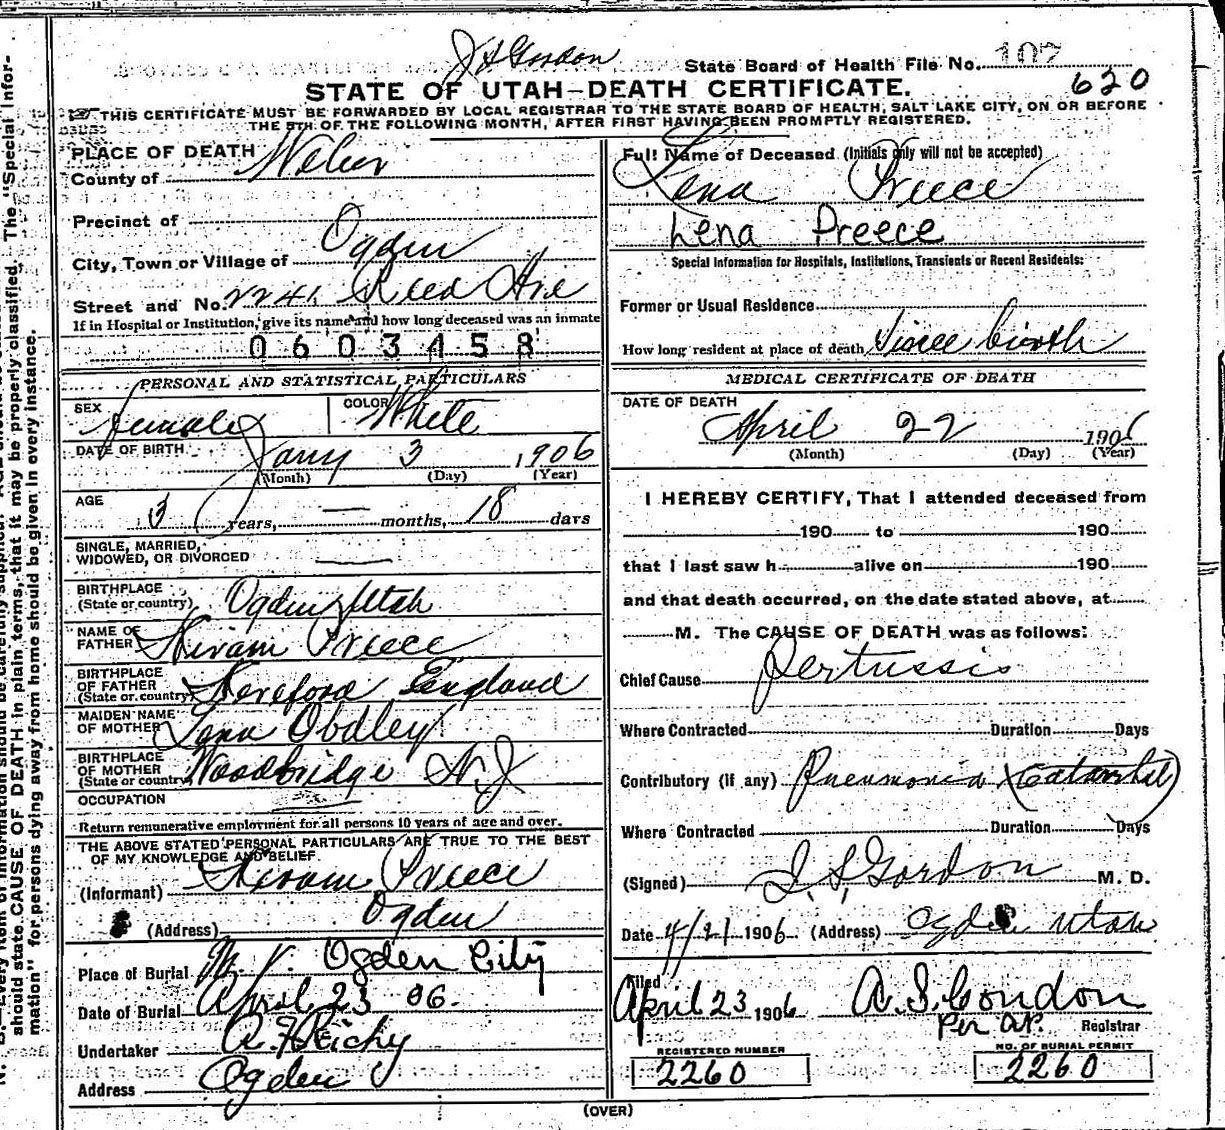 J S Gordon
State Board of Health File No. 107
620
STATE OF UTAH—DEATH CERTIFICATE.
THIS CERTIFICATE MUST BE FORWARDED BY LOCAL REGISTRAR TO THE STATE BOARD OF HEALTH, SALT LAKE CITY, ON OR BEFORE
THE 5TH OF THE FOLLOWING MONTH, AFTER FIRST HAVING BEEN PROMPTLY REGISTERED.
PLACE OF DEATH
County of Weber
Precinct of
City, Town or Village of Ogden
Street and No. 2241 Reed Ave
If in Hospital or Institution, give its name and how long deceased was an inmate
0603458
PERSONAL AND STATISTICAL PARTICULARS
SEX female COLOR White
DATE OF BIRTH Jany 3 1906
(Month) (Day) (Year)
AGE 3 years, — months, 18 days
SINGLE, MARRIED,
WIDOWED, OR DIVORCED —
BIRTHPLACE
(State or country) Ogden Utah
NAME OF
FATHER Hiram Preece
BIRTHPLACE
OF FATHER
(State or country) Hereford England
MAIDEN NAME
OF MOTHER Lena Obdley
BIRTHPLACE
OF MOTHER
(State or country) Woodbridge N.J
OCCUPATION
Return remunerative employment for all persons 10 years of age and over.
THE ABOVE STATED PERSONAL PARTICULARS ARE TRUE TO THE BEST
OF MY KNOWLEDGE AND BELIEF.
(Informant) Hiram Preece
(Address) Ogden
Place of Burial Ogden City
Date of Burial April 23 06.
Undertaker
Address Ogden
Full Name of Deceased (Initials only will not be accepted)
Lena Preece
Lena Preece
Special Information for Hospitals, Institutions, Transients or Recent Residents:
Former or Usual Residence
How long resident at place of death Since birth
MEDICAL CERTIFICATE OF DEATH
DATE OF DEATH
April 22 1906
(Month) (Day) (Year)
I HEREBY CERTIFY, That I attended deceased from
190 to 190
that I last saw h alive on 190
and that death occurred, on the date stated above, at
M. The CAUSE OF DEATH was as follows:
Chief Cause Pertussis
Where Contracted Duration Days
Contributory (if any) Pneumonia (Catarrhal)
Where Contracted Duration Days
(Signed) J. S. Gordon M. D.
Date 4/21 1906 (Address) Ogden Utah
Filed
April 23 1906 A. S. Condon
Per AP. Registrar
REGISTERED NUMBER
2260
NO. OF BURIAL PERMIT
2260
(OVER)
should state CAUSE OF DEATH in plain terms, that it may be properly classified. The "Special Infor-
mation" for persons dying away from home should be given in every instance.